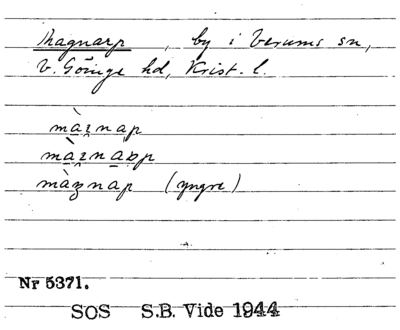 Magnarp , by i Verums sn,
V. Göinge hd, Krist. l.
màʒnap
màʒnapp
màʒnap (yngre)
Nr 5371.
SOS S.B. Vide 1944